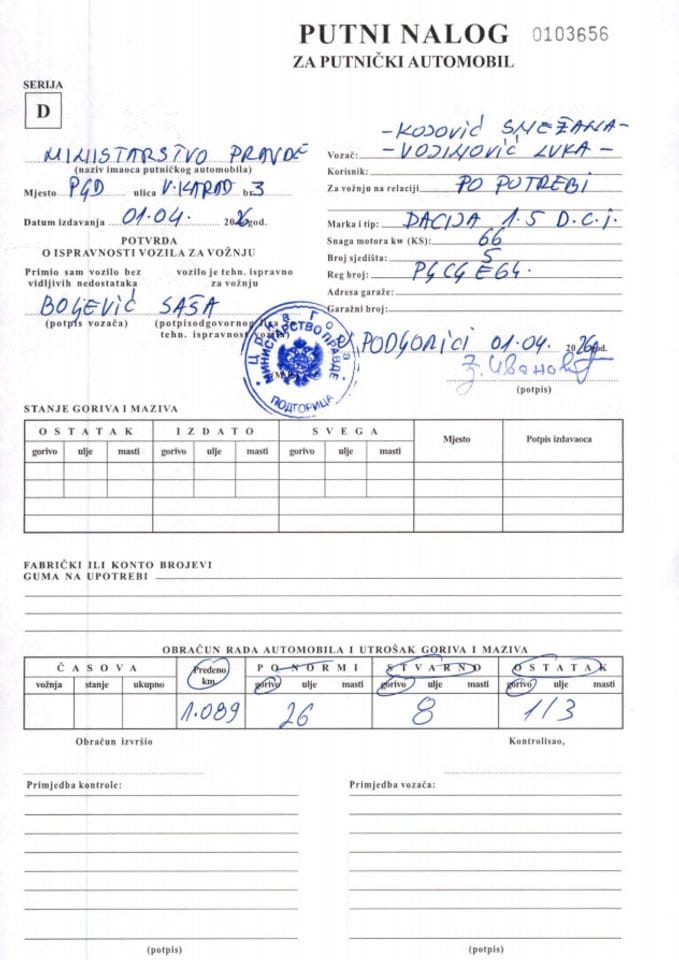 PUTNI NALOG 0103656
ZA PUTNIČKI AUTOMOBIL
SERIJA
D
MINISTARSTVO PRAVDE
(naziv imaoca putničkog automobila)
Mjesto PGD ulica V.KARAD br. 3
Datum izdavanja 01.04. 2026 god.
POTVRDA
O ISPRAVNOSTI VOZILA ZA VOŽNJU
Primio sam vozilo bez vidljivih nedostataka
vozilo je tehn. ispravno za vožnju
BOLJEVIĆ SAŠA
(potpis vozača) (potpis odgovornog
tehn. ispravnost vozila)
-KOJOVIĆ SNEŽANA-
Vozač: -VOJINOVIĆ LUKA-
Korisnik:
Za vožnju na relaciji PO POTREBI
Marka i tip: DACIJA 1.5 D.C.i.
Snaga motora kw (KS): 66
Broj sjedišta: 5
Reg broj: PGCG E64.
Adresa garaže:
Garažni broj:
U PODGORICI 01.04. 2026 god.
(potpis)
Црна Гора
МИНИСТАРСТВО ПРАВДЕ
ПОДГОРИЦА
STANJE GORIVA I MAZIVA
OSTATAK IZDATO SVEGA Mjesto Potpis izdavaoca
gorivo ulje masti gorivo ulje masti gorivo ulje masti
FABRIČKI ILI KONTO BROJEVI
GUMA NA UPOTREBI
OBRAČUN RADA AUTOMOBILA I UTROŠAK GORIVA I MAZIVA
ČASOVA Pređeno km PO NORMI STVARNO OSTATAK
vožnja stanje ukupno gorivo ulje masti gorivo ulje masti gorivo ulje masti
1.089 26 8 1/3
Obračun izvršio Kontrolisao,
Primjedba kontrole: Primjedba vozača:
(potpis) (potpis)